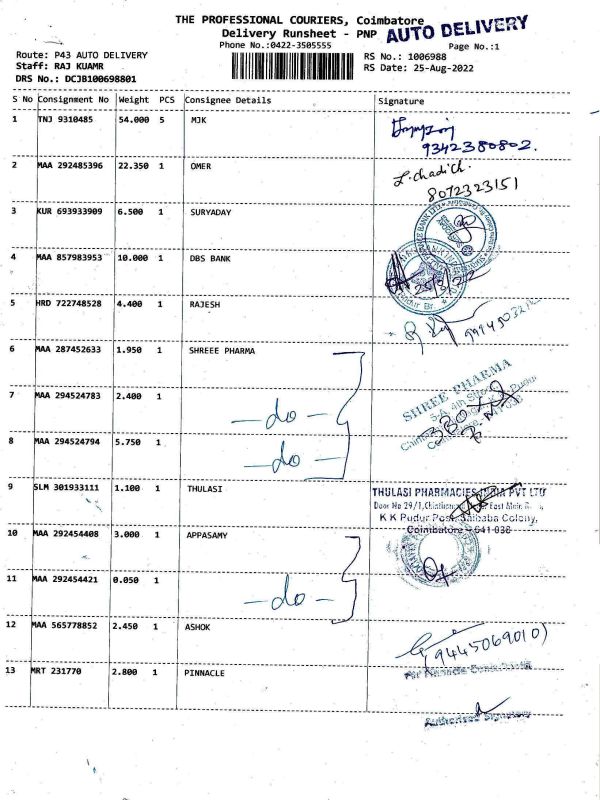 THE PROFESSIONAL COURIERS, Coimbatore
Delivery Runsheet - PNP
AUTO DELIVERY
Phone No.:0422-3505555
Page No.:1
Route: P43 AUTO DELIVERY
RS No.: 1006988
Staff: RAJ KUAMR
RS Date: 25-Aug-2022
DRS No.: DCJB100698801
S No Consignment No Weight PCS Consignee Details Signature
1 TNJ 9310485 54.000 5 MJK
9342380802.
2 MAA 292485396 22.350 1 OMER
8072323151
3 KUR 693933909 6.500 1 SURYADAY
4 MAA 857983953 10.000 1 DBS BANK
25/8/22
5 HRD 722748528 4.400 1 RAJESH
6 MAA 287452633 1.950 1 SHREEE PHARMA
SHREE PHARMA
7 MAA 294524783 2.400 1
-do-
8 MAA 294524794 5.750 1
-do-
9 SLM 301933111 1.100 1 THULASI
THULASI PHARMACIES INDIA PVT LTD
K K Pudur Post, Saibaba Colony,
Coimbatore - 641 038
10 MAA 292454408 3.000 1 APPASAMY
11 MAA 292454421 0.050 1
-do-
12 MAA 565778852 2.450 1 ASHOK
9445069010)
13 MRT 231770 2.800 1 PINNACLE
Authorised Signatory